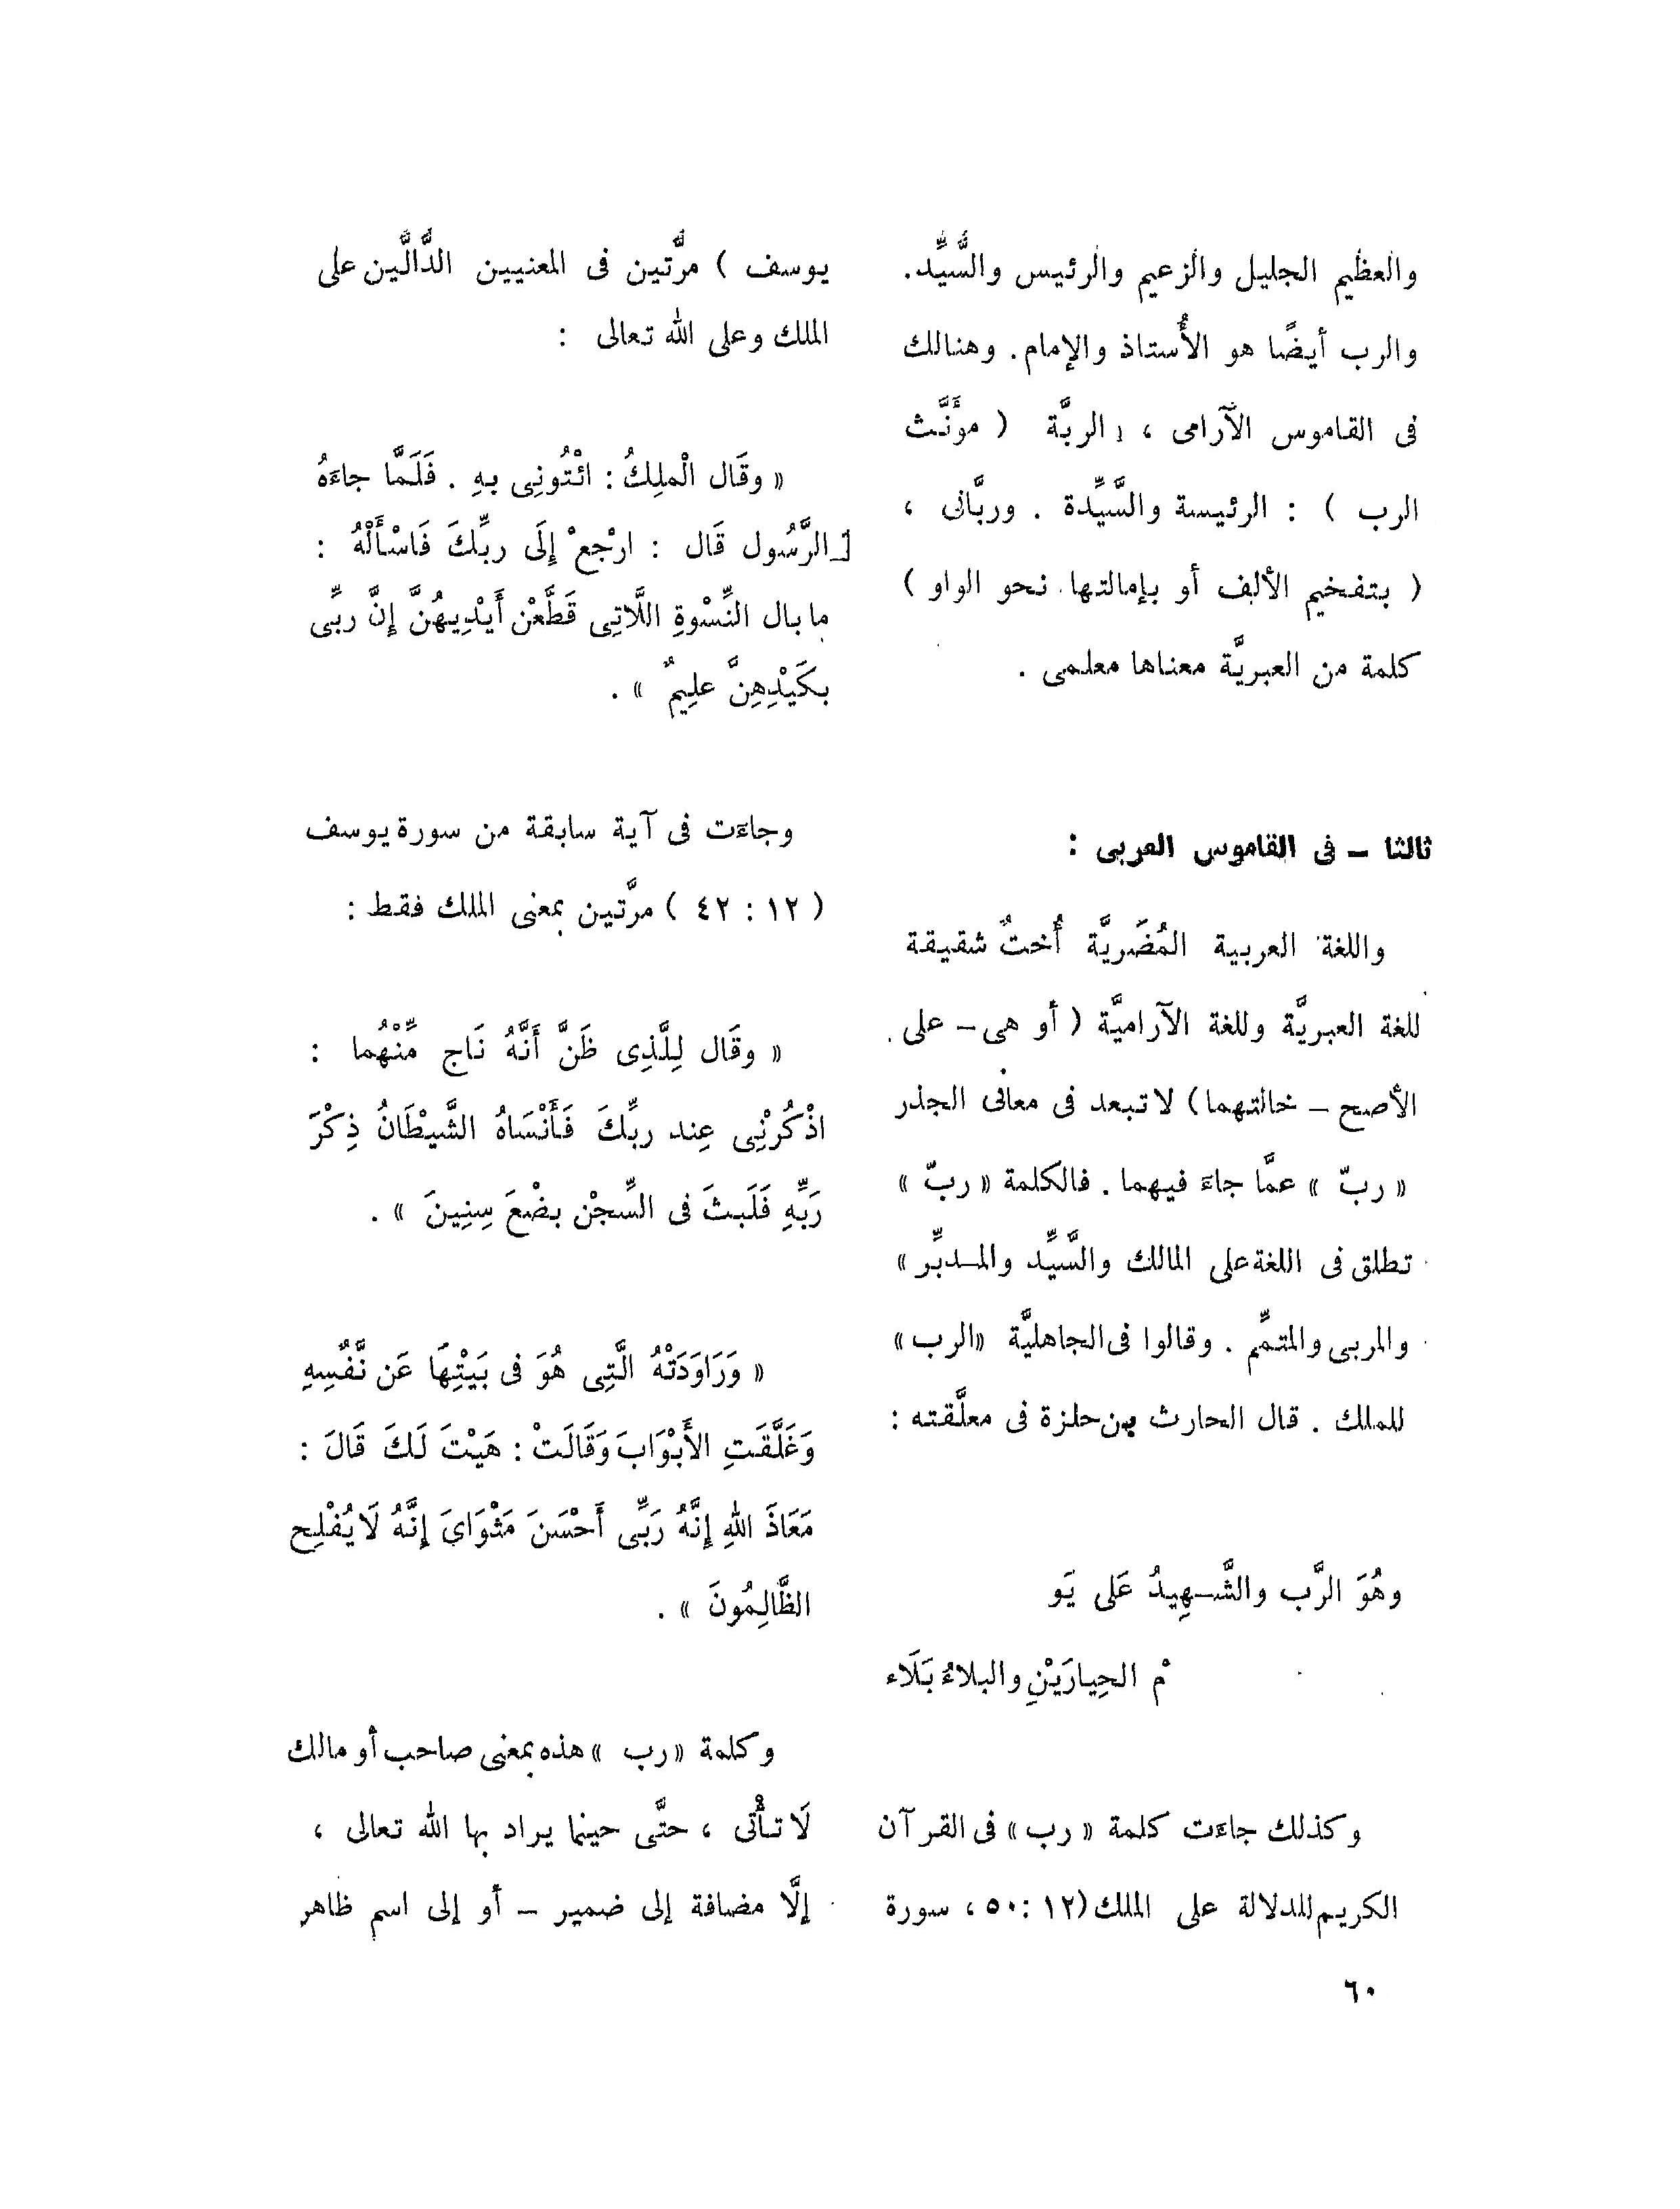 والعظيم الجليل والزعيم والرئيس والسُّيِّد.
والرب أيضًا هو الأُستاذ والإمام. وهنالك
فى القاموس الآرامى ، الربَّة ( مؤَنَّث
الرب ) : الرئيسة والسَّيِّدة . وربَّانى ،
( بتفخيم الألف أو بإمالتها نحو الواو )
كلمة من العبريَّة معناها معلمى .
ثالثا – فى القاموس العربى :
واللغة العربية المُضَريَّة أُختٌ شقيقة
للغة العبريَّة وللغة الآراميَّة ( أو هى – على
الأصح – خالتهما ) لا تبعد فى معانى الجذر
« ربّ » عمَّا جاءَ فيهما . فالكلمة « ربّ »
تطلق فى اللغة على المالك والسَّيِّد والمـدبِّر »
والمربى والمتمِّم . وقالوا فى الجاهليَّة «الرب»
للملك . قال الحارث بن حلزة فى معلَّقته :
وهُوَ الرَّب والشَّـهِيدُ عَلى يَو
مْ الحِيارَيْنِ والبلاءُ بَلَاء
وكذلك جاءَت كلمة « رب » فى القرآن
الكريم للدلالة على الملك (١٢ : ٥٠ ، سورة
يوسف ) مرَّتين فى المعنيين الدَّالَّين على
الملك وعلى الله تعالى :
« وقَال الْملِكُ : ائْتُونِى بهِ . فَلَمَّا جاءَهُ
الرَّسُول قَال : ارْجعْ إِلَى ربِّكَ فَاسْأَلْهُ :
ما بال النِّسْوةِ اللَّاتِى قَطَّعْن أَيْدِيهُنَّ إِنَّ ربِّى
بكَيْدِهِنَّ علِيمٌ » .
وجاءَت فى آية سابقة من سورة يوسف
( ١٢ : ٤٢ ) مرَّتين بمعنى الملك فقط :
« وقَال لِلَّذِى ظَنَّ أَنَّهُ نَاج مِّنْهُما :
اذْكُرْنِى عِند ربِّكَ فَأَنْسَاهُ الشَّيْطَانُ ذِكْرَ
رَبِّهِ فَلَبثَ فى السِّجْن بضْعَ سِنِينَ » .
« وَرَاوَدَتْهُ الَّتِى هُوَ فى بَيْتِهَا عَن نَّفْسِهِ
وَغَلَّقَتِ الأَبْوَابَ وَقَالَتْ : هَيْتَ لَكَ قَالَ :
مَعَاذَ اللهِ إِنَّهُ رَبِّى أَحْسَنَ مَثْوَاىَ إِنَّهُ لَا يُفْلِح
الظَّالِمُونَ » .
وكلمة « رب » هذه بمعنى صاحب أو مالك
لَا تأْتى ، حتَّى حينما يراد بها الله تعالى ،
إلَّا مضافة إلى ضمير – أو إلى اسم ظاهر
٦٠